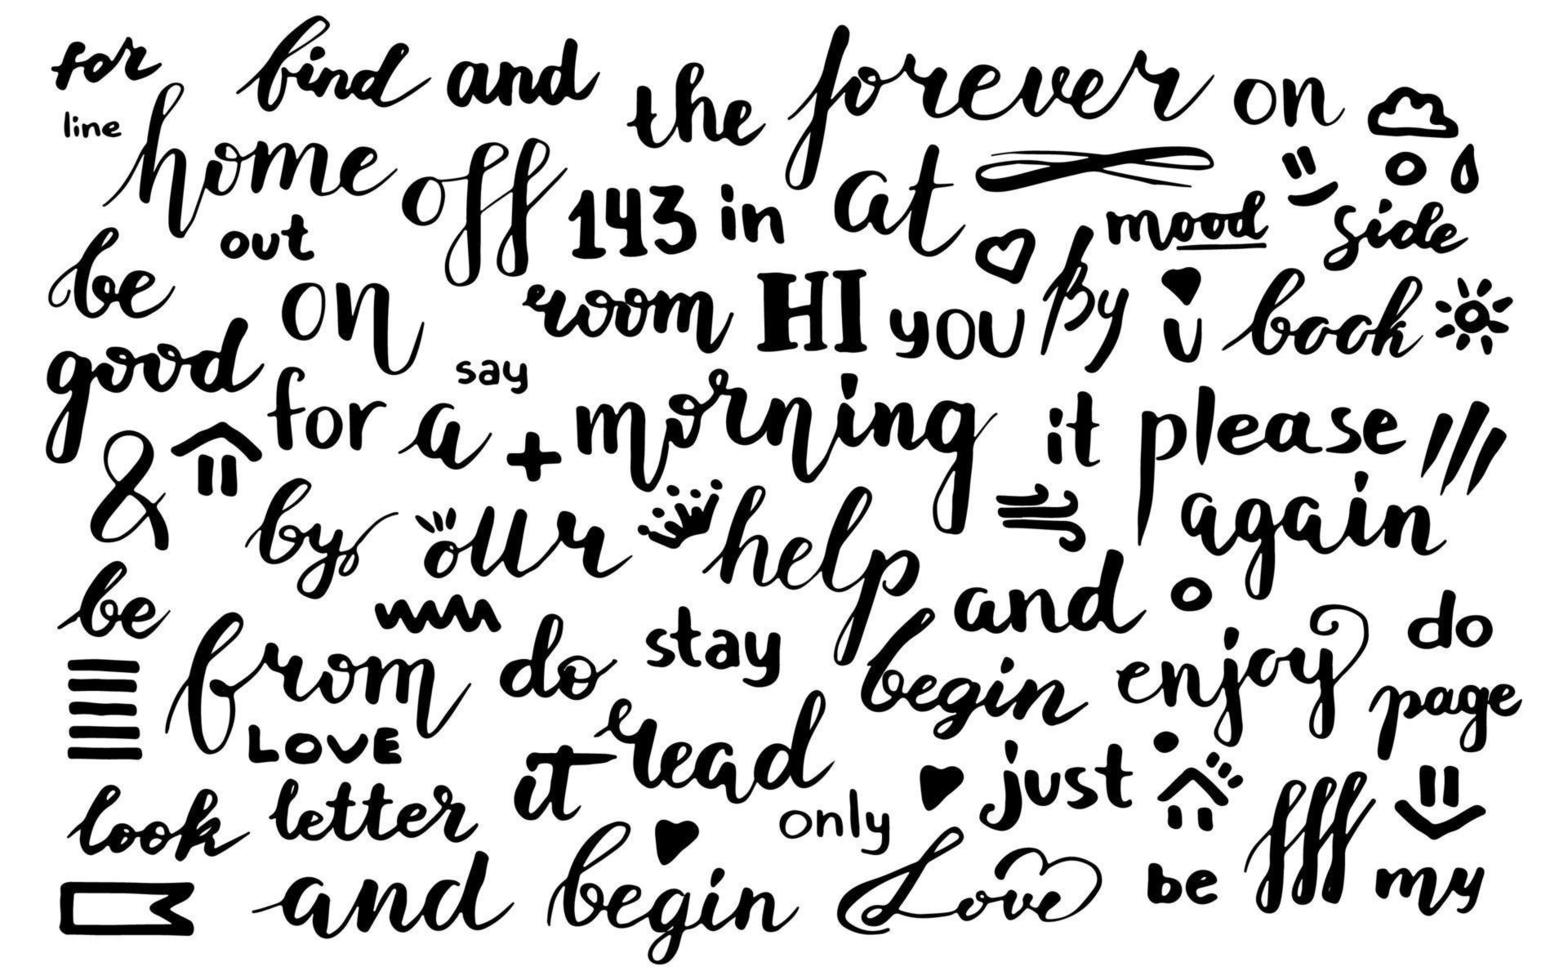 for find and the forever on
line home off 143 in at mood side
be out on room HI you By u book
good for a say + morning it please
& by our help again
be from do stay and begin enjoy do
LOVE it read just page
look letter only
and begin Love be my